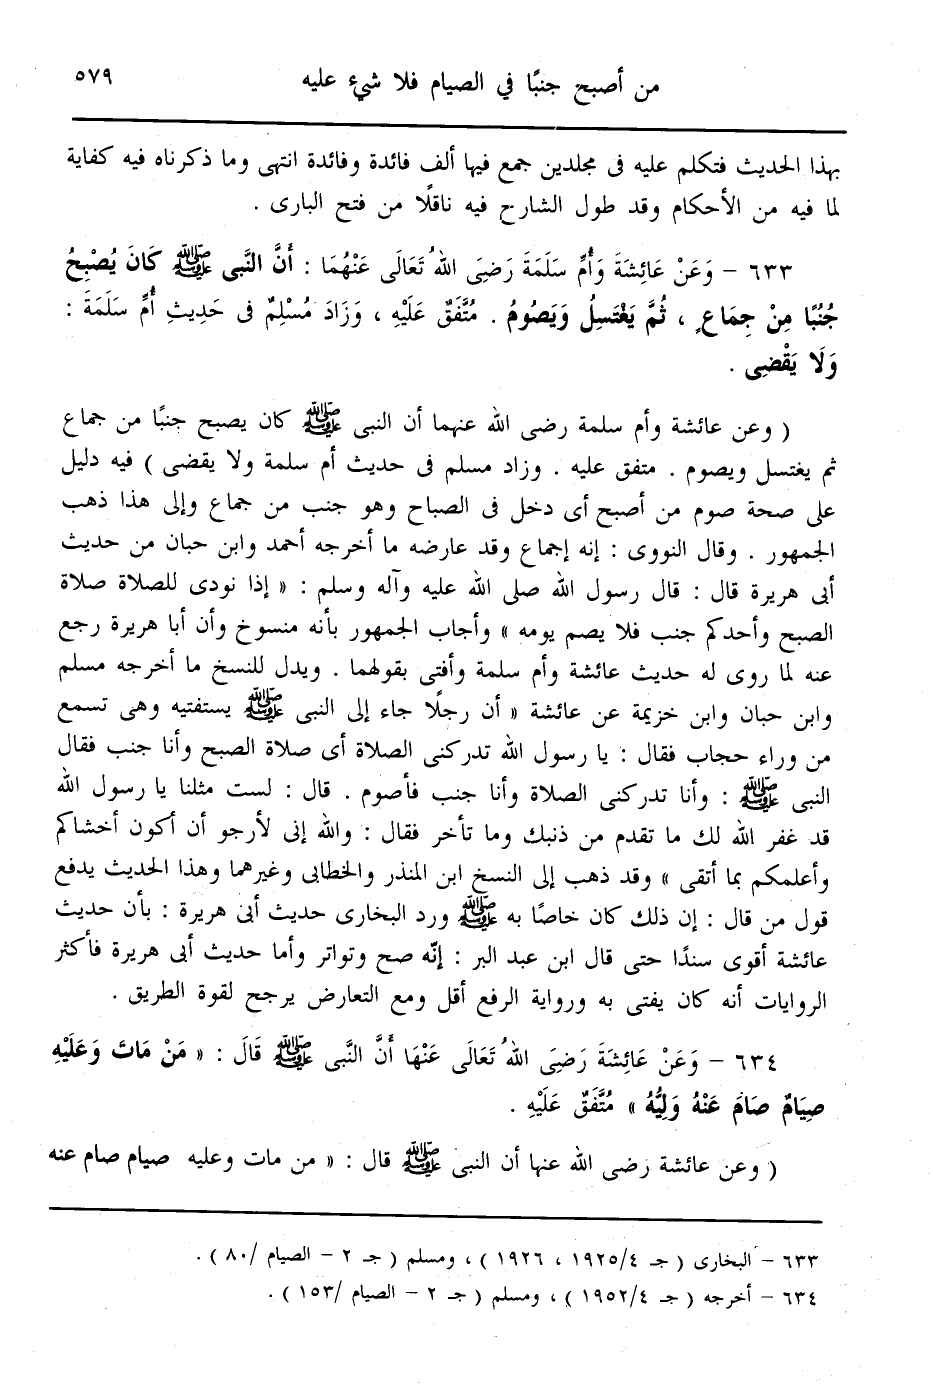 من أصبح جنبًا في الصيام فلا شيء عليه ٥٧٩
بهذا الحديث فتكلم عليه فى مجلدين جمع فيها ألف فائدة وفائدة انتهى وما ذكرناه فيه كفاية
لما فيه من الأحكام وقد طول الشارح فيه ناقلًا من فتح البارى .
٦٣٣ – وَعَنْ عَائِشَةَ وَأُمِّ سَلَمَةَ رَضِىَ اللهُ تَعَالَى عَنْهُمَا : أَنَّ النَّبِى ﷺ كَانَ يُصْبِحُ
جُنُبًا مِنْ جِمَاعٍ ، ثُمَّ يَغْتَسِلُ وَيَصُومُ . مُتَّفَقٌ عَلَيْهِ ، وَزَادَ مُسْلِمٌ فى حَدِيثِ أُمِّ سَلَمَةَ :
وَلَا يَقْضِى .
( وعن عائشة وأم سلمة رضى الله عنهما أن النبى ﷺ كان يصبح جنبًا من جماع
ثم يغتسل ويصوم . متفق عليه . وزاد مسلم فى حديث أم سلمة ولا يقضى ) فيه دليل
على صحة صوم من أصبح أى دخل فى الصباح وهو جنب من جماع وإلى هذا ذهب
الجمهور . وقال النووى : إنه إجماع وقد عارضه ما أخرجه أحمد وابن حبان من حديث
أبى هريرة قال : قال رسول الله صلى الله عليه وآله وسلم : « إذا نودى للصلاة صلاة
الصبح وأحدكم جنب فلا يصم يومه » وأجاب الجمهور بأنه منسوخ وأن أبا هريرة رجع
عنه لما روى له حديث عائشة وأم سلمة وأفتى بقولهما . ويدل للنسخ ما أخرجه مسلم
وابن حبان وابن خزيمة عن عائشة « أن رجلًا جاء إلى النبى ﷺ يستفتيه وهى تسمع
من وراء حجاب فقال : يا رسول الله تدركنى الصلاة أى صلاة الصبح وأنا جنب فقال
النبى ﷺ : وأنا تدركنى الصلاة وأنا جنب فأصوم . قال : لست مثلنا يا رسول الله
قد غفر الله لك ما تقدم من ذنبك وما تأخر فقال : والله إنى لأرجو أن أكون أخشاكم
وأعلمكم بما أتقى » وقد ذهب إلى النسخ ابن المنذر والخطابى وغيرهما وهذا الحديث يدفع
قول من قال : إن ذلك كان خاصًا به ﷺ ورد البخارى حديث أبى هريرة : بأن حديث
عائشة أقوى سندًا حتى قال ابن عبد البر : إنّه صح وتواتر وأما حديث أبى هريرة فأكثر
الروايات أنه كان يفتى به ورواية الرفع أقل ومع التعارض يرجح لقوة الطريق .
٦٣٤ – وَعَنْ عَائِشَةَ رَضِىَ اللهُ تَعَالَى عَنْهَا أَنَّ النَّبِى ﷺ قَالَ : « مَنْ مَاتَ وَعَلَيْهِ
صِيَامٌ صَامَ عَنْهُ وَلِيُّهُ » مُتَّفَقٌ عَلَيْهِ .
( وعن عائشة رضى الله عنها أن النبى ﷺ قال : « من مات وعليه صيام صام عنه
٦٣٣ – البخارى ( جـ ١٩٢٥/٤ ، ١٩٢٦ ) ، ومسلم ( جـ ٢ – الصيام /٨٠ ) .
٦٣٤ – أخرجه ( جـ ١٩٥٢/٤ ) ، ومسلم ( جـ ٢ – الصيام /١٥٣ ) .